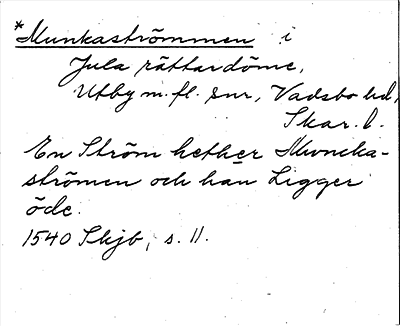 *Munkaströmmen i
Jula rättardöme,
Utby m. fl. snr, Vadsbo hd,
Skar. l.
En Ström hether Muncka-
strömen och han Ligger
öde.
1540 Skjb, s. 11.